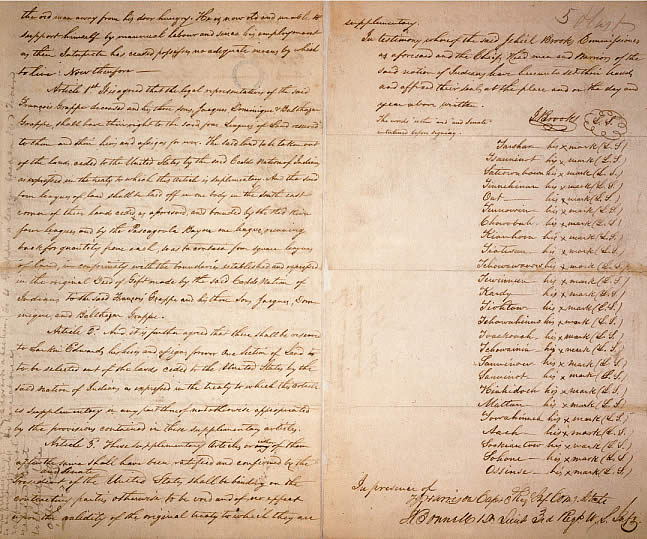 the red man away from his door hungry. He is now old and unable to
support himself by manual labour and since his employment
as their Interpreter has ceased possesses no adequate means by which
to live: Now therefore —
Article 1st It is agreed that the legal representatives of the said
François Grappe deceased and his three sons, Jacques, Dominique & Balthazar
Grappe, shall have their right to the said four leagues of land reserved
to them and their heirs and assigns for ever. The said land to be taken out
of the lands ceded to the United States by the said Caddo Nation of Indians
as expressed in the treaty to which this article is supplementary. And the said
four leagues of land shall be laid off in one body in the south east
corner of their lands ceded as aforesaid, and bounded by the Red River
four leagues and by the Pascagoula Bayou one league, running
back for quantity from each, so as to contain four square leagues
of land, in conformity with the boundaries established and expressed
in the original Deed of Gift made by the said Caddo Nation of
Indians to the said François Grappe and his three sons, Jacques, Dom-
inique, and Balthazar Grappe.
Article 2d And it is further agreed that there shall be reserved
to Larkin Edwards his heirs and assigns forever one section of land to
to be selected out of the lands ceded to the United States by the
said nation of Indians as expressed in the treaty to which this article
is supplementary in any part thereof not otherwise appropriated
by the provisions contained in these supplementary articles.
Article 3d These supplementary articles, or either of them
after the same shall have been ratified and confirmed by the
President and Senate of the United States shall be binding on the
contracting parties otherwise to be void and of no effect
upon the validity of the original treaty to which they are
supplementary.
In testimony whereof the said Jehiel Brooks Commissioner
as aforesaid and the Chiefs, Head men and Warriors of the
said nation of Indians have hereunto set their hands
and affixed their seals at the place and on the day and
year above written.
J Brooks (L.S.)
The words "either one and" and Senate
interlined before signing.
Tarshar his x mark (L.S.)
Tsauninot his x mark (L.S.)
Satiownhown his x mark (L.S.)
Tinnehinan his x mark (L.S.)
Oat — his x mark (L.S.)
Tinnowin his x mark (L.S.)
Chowabah his x mark (L.S.)
Kianhoon his x mark (L.S.)
Tiatesun his x mark (L.S.)
Tehowawinow his x mark (L.S.)
Tewinnun his x mark (L.S.)
Kardy his x mark (L.S.)
Tiohtow his x mark (L.S.)
Tehowahinno his x mark (L.S.)
Tooeksoach his x mark (L.S.)
Tehowainia his x mark (L.S.)
Sauninow his x mark (L.S.)
Saunivoat his x mark (L.S.)
Highahidock his x mark (L.S.)
Mattan his x mark (L.S.)
Towabinneh his x mark (L.S.)
Aach his x mark (L.S.)
Sookiantow his x mark (L.S.)
Sohone his x mark (L.S.)
Ossinse his x mark (L.S.)
In presence of
Bonnell 1st Lieut 3rd Regt U. S. Inf.